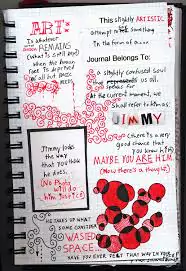 ART:
Is whatever
REMAINS
(What is still here)
when the
human
race is
of all but
This slightly ARTISTIC
attempt at something
In the form of a....
Journal Belongs To:
A slightly confused Soul
that represents us all.
At the current moment, we
shall refer to him as:
JIMMY
(there is a very
good chance that
you know him.)
MAYBE YOU ARE HIM.
(Now there's a thought!)
Jimmy looks
the way
that you
think he
does.
(No Photo
will do
him justice)
HE TAKES UP WHAT
SOME CONSIDER
WASTED
SPACE.
HAVE YOU EVER FELT THAT WAY IN YOUR